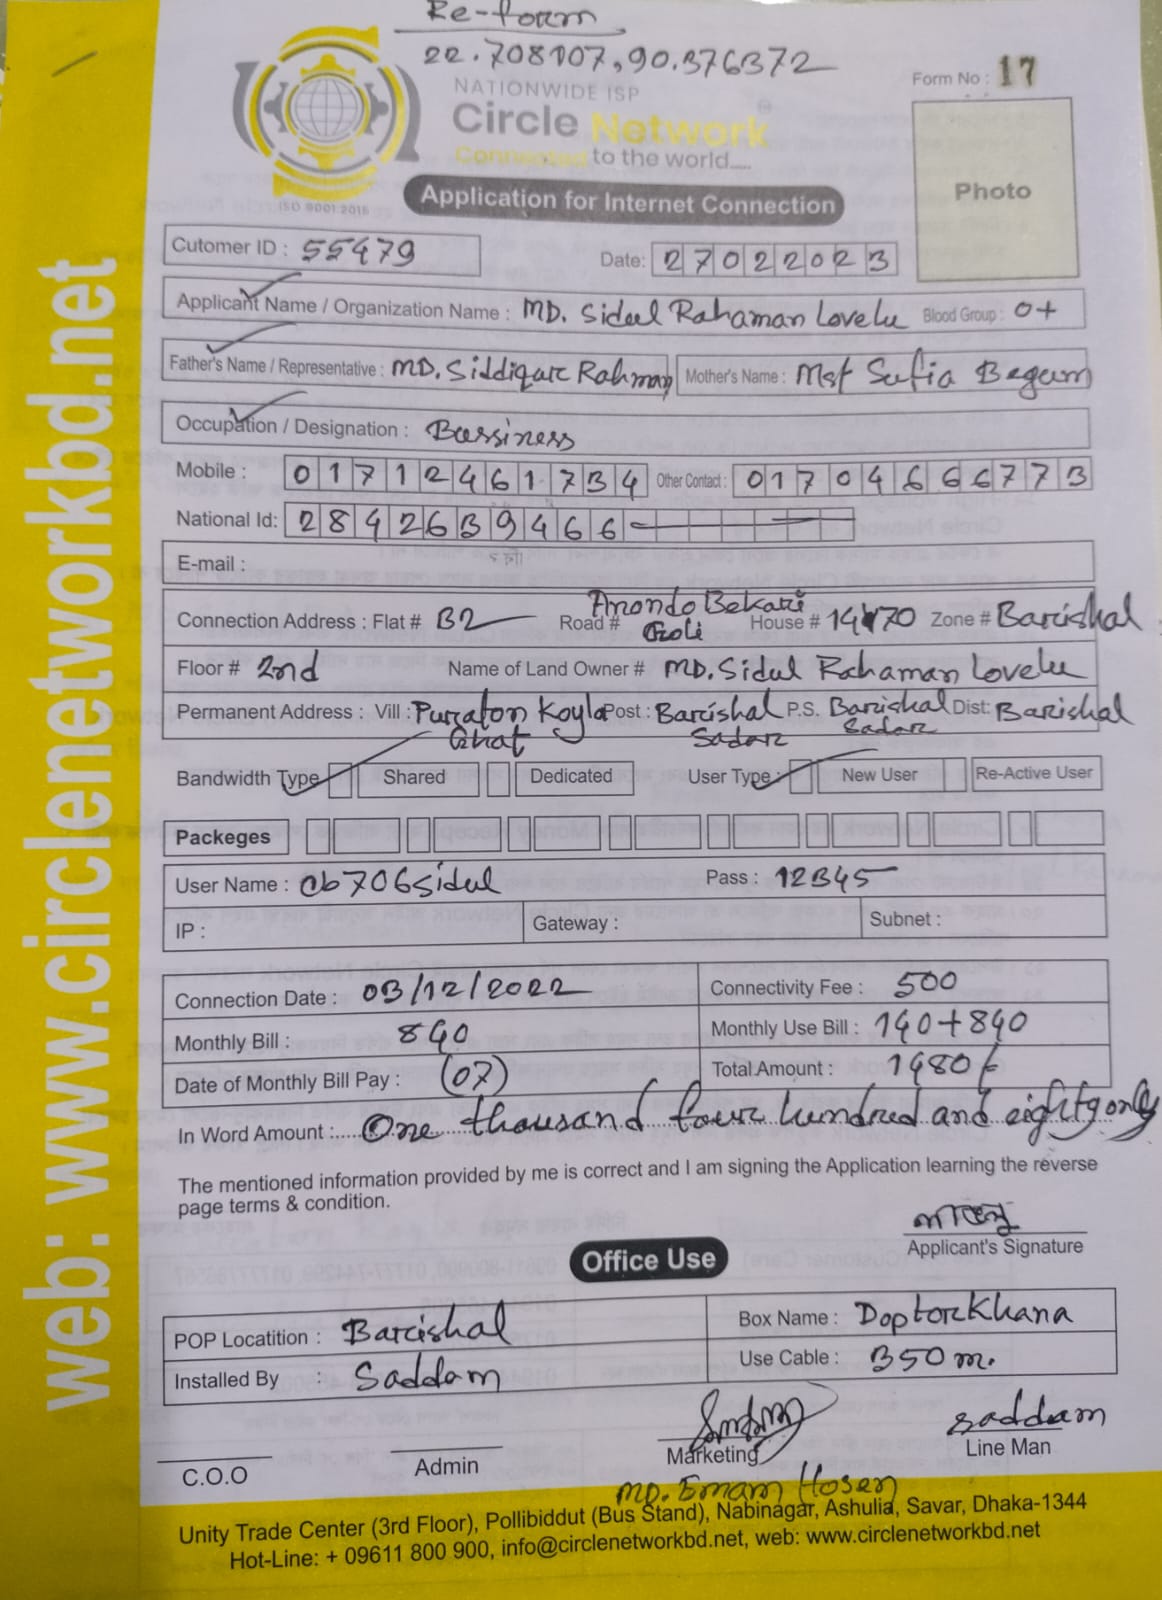 Re-form
22.708107,90.376372
NATIONWIDE ISP
Form No : 17
Circle Network
Connected to the world....
Photo
ISO 9001:2015
Application for Internet Connection
Cutomer ID : 55479
Date: 27022023
Applicant Name / Organization Name : MD. Sidul Rahaman Lovelu Blood Group : O+
Father's Name / Representative : MD. Siddiqur Rahman Mother's Name : Mst Sufia Begum
Occupation / Designation : Bussiness
Mobile : 01712461734 Other Contact : 01704666773
National Id: 2842639466
E-mail :
Connection Address : Flat # B2 Road # Anondo Bekari Goli House # 1470 Zone # Barishal
Floor # 2nd Name of Land Owner # MD. Sidul Rahaman Lovelu
Permanent Address : Vill : Puraton Koyla Ghat Post : Barishal Sadar P.S. Barishal Sadar Dist: Barishal
Bandwidth Type Shared Dedicated User Type : New User Re-Active User
Packeges
User Name : cb706sidul Pass : 12345
IP : Gateway : Subnet :
Connection Date : 03/12/2022 Connectivity Fee : 500
Monthly Bill : 840 Monthly Use Bill : 140+840
Date of Monthly Bill Pay : (07) Total Amount : 1480/
In Word Amount :..... One thousand four hundred and eighty only
The mentioned information provided by me is correct and I am signing the Application learning the reverse
page terms & condition.
Applicant's Signature
Office Use
POP Locatition : Barishal Box Name : Doptorkhana
Installed By : Saddam Use Cable : 350 m.
saddam
C.O.O Admin Marketing Line Man
MD. Emam Hosen
Unity Trade Center (3rd Floor), Pollibiddut (Bus Stand), Nabinagar, Ashulia, Savar, Dhaka-1344
Hot-Line: + 09611 800 900, info@circlenetworkbd.net, web: www.circlenetworkbd.net
web: www.circlenetworkbd.net